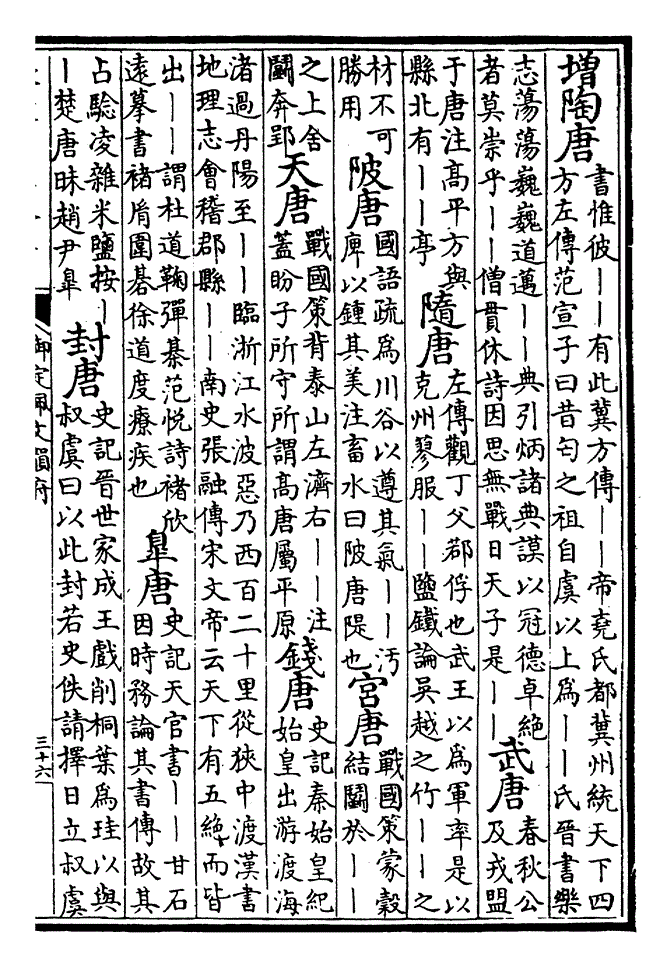 增陶唐
書惟彼――有此冀方傳――帝堯氏都冀州統天下四
方左傳范宣子曰昔匄之祖自虞以上爲――氏晉書樂
志蕩蕩巍巍道邁――典引炳諸典謨以冠德卓絶
者莫崇乎――僧貫休詩因思無戰日天子是――
武唐
春秋公
及戎盟
于唐注髙平方與
縣北有――亭
隨唐
左傳觀丁父鄀俘也武王以爲軍率是以
克州蓼服――鹽鐵論吳越之竹――之
材不可
勝用
陂唐
國語疏爲川谷以遵其氣――汚
庳以鍾其美注畜水曰陂唐隄也
宮唐
戰國策蒙穀
結鬭於――
之上舍
鬭奔郢
天唐
戰國策背泰山左濟右――注
蓋盼子所守所謂髙唐屬平原
錢唐
史記秦始皇紀
始皇出游渡海
渚過丹陽至――臨浙江水波惡乃西百二十里從狹中渡漢書
地理志會稽郡縣――南史張融傳宋文帝云天下有五絶而皆
出――謂杜道鞠彈棊范悅詩褚欣
遠摹書褚㣧圍棊徐道度療疾也
臯唐
史記天官書――甘石
因時務論其書傳故其
占驗凌雜米鹽按―
―楚唐昧趙尹臯
封唐
史記晉世家成王戲削桐葉爲珪以與
叔虞曰以此封若史佚請擇日立叔虞
御定佩文韻府
三十六